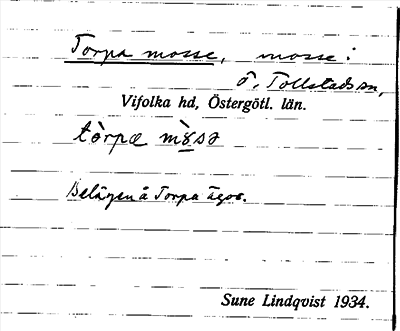 Torpa mosse, mosse:
Ö. Tollstads sn,
Vifolka hd, Östergötl. län.
tòrpæ mò̱sə
Belägen å Torpa ägor.
Sune Lindqvist 1934.